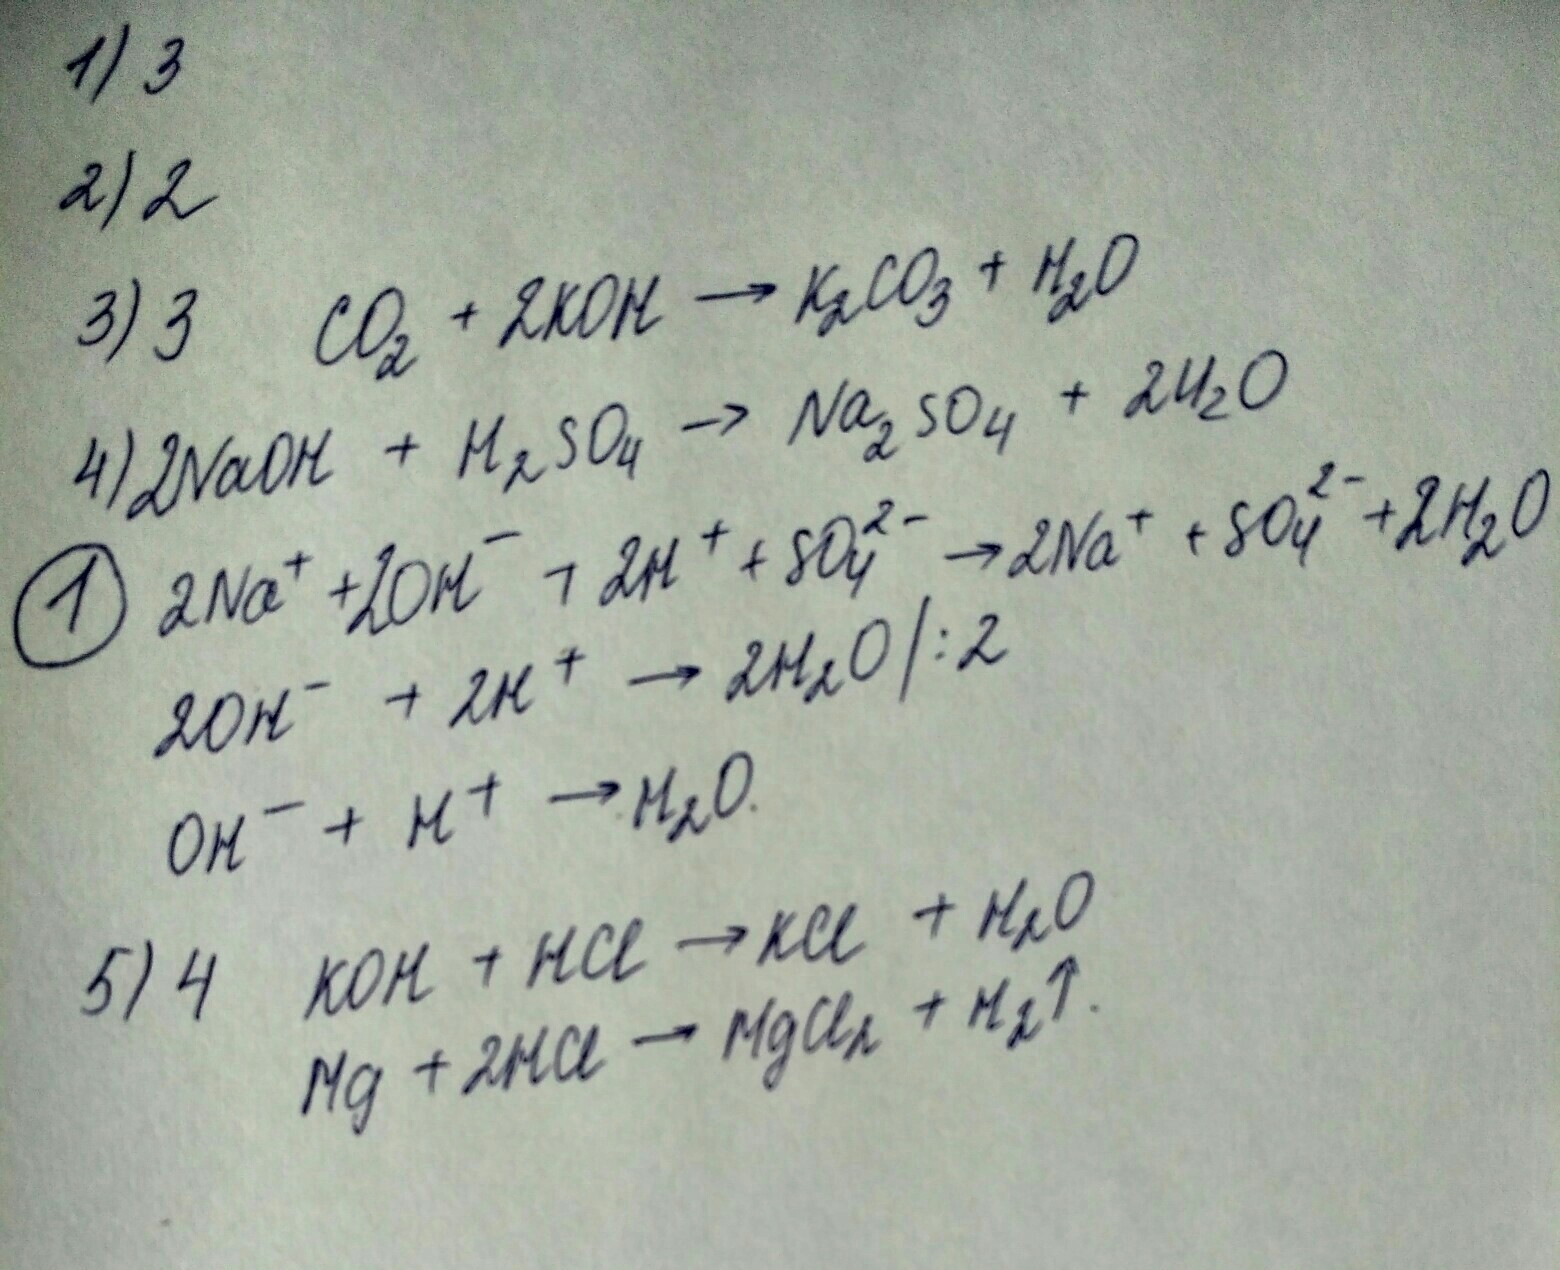 1) 3
2) 2
3) 3 CO₂ + 2KOH → K₂CO₃ + H₂O
4) 2NaOH + H₂SO₄ → Na₂SO₄ + 2H₂O
① 2Na⁺ + 2OH⁻ + 2H⁺ + SO₄²⁻ → 2Na⁺ + SO₄²⁻ + 2H₂O
2OH⁻ + 2H⁺ → 2H₂O | : 2
OH⁻ + H⁺ → H₂O.
5) 4 KOH + HCl → KCl + H₂O
Mg + 2HCl → MgCl₂ + H₂↑.